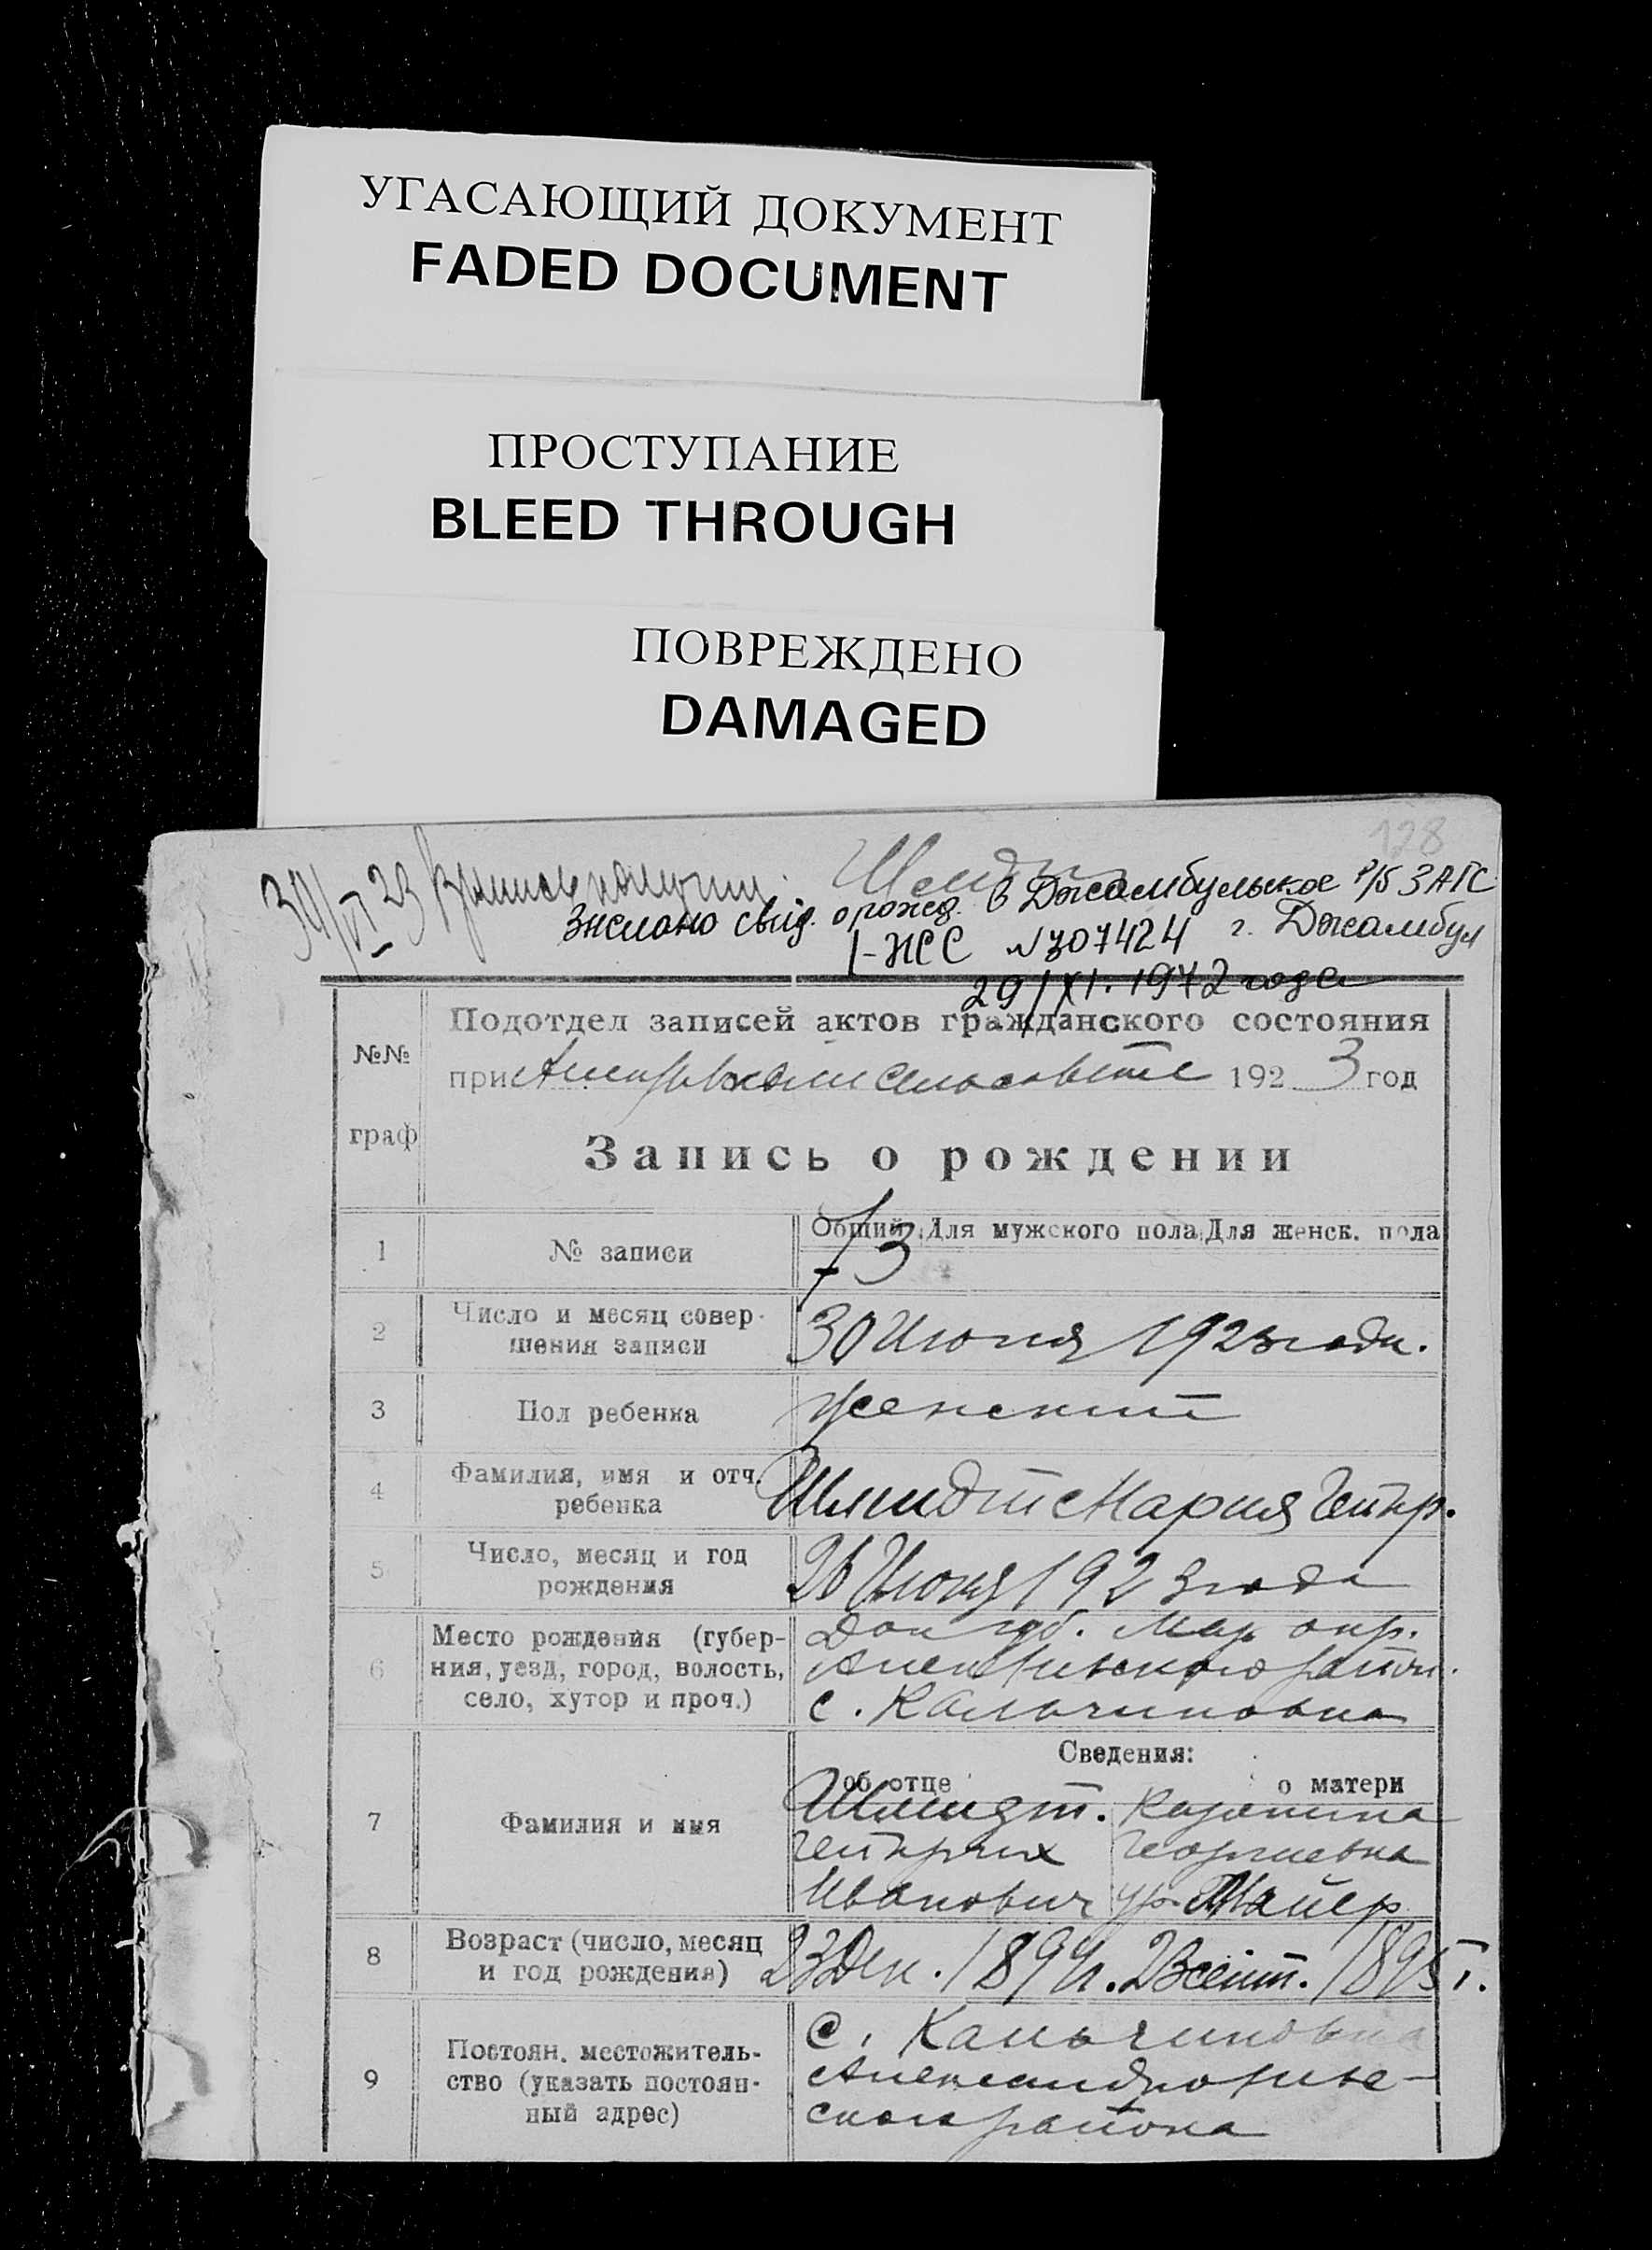 УГАСАЮЩИЙ ДОКУМЕНТ
FADED DOCUMENT
ПРОСТУПАНИЕ
BLEED THROUGH
ПОВРЕЖДЕНО
DAMAGED
128
30/VI 23
Шмидт
свид. о рожд. в Джамбульское р/б ЗАГС
I-НСС №307424 г. Джамбул
29/XI. 1972 года
Подотдел записей актов гражданского состояния
№№
при 192 3 год
граф
Запись о рождении
Общий Для мужского пола Для женск. пола
1 № записи 73
2 Число и месяц совершения записи 30 Июня 1923 года.
3 Пол ребенка Женский
4 Фамилия, имя и отч. ребенка Шмидт Мария Гейнр.
5 Число, месяц и год рождения 26 Июня 1923 года
6 Место рождения (губерния, уезд, город, волость, село, хутор и проч.) Дон губ. Мар. окр.
района.
с. Кальчиновка
Сведения:
об отце о матери
7 Фамилия и имя Шмидт.
Гейнрих Георгиевна
Иванович ур. Майер
8 Возраст (число, месяц и год рождения) 23 Дек. 1894 г. 2 Сент. 1895 г.
9 Постоян. местожительство (указать постоянный адрес) с. Кальчиновка
Александроневс-
ского района